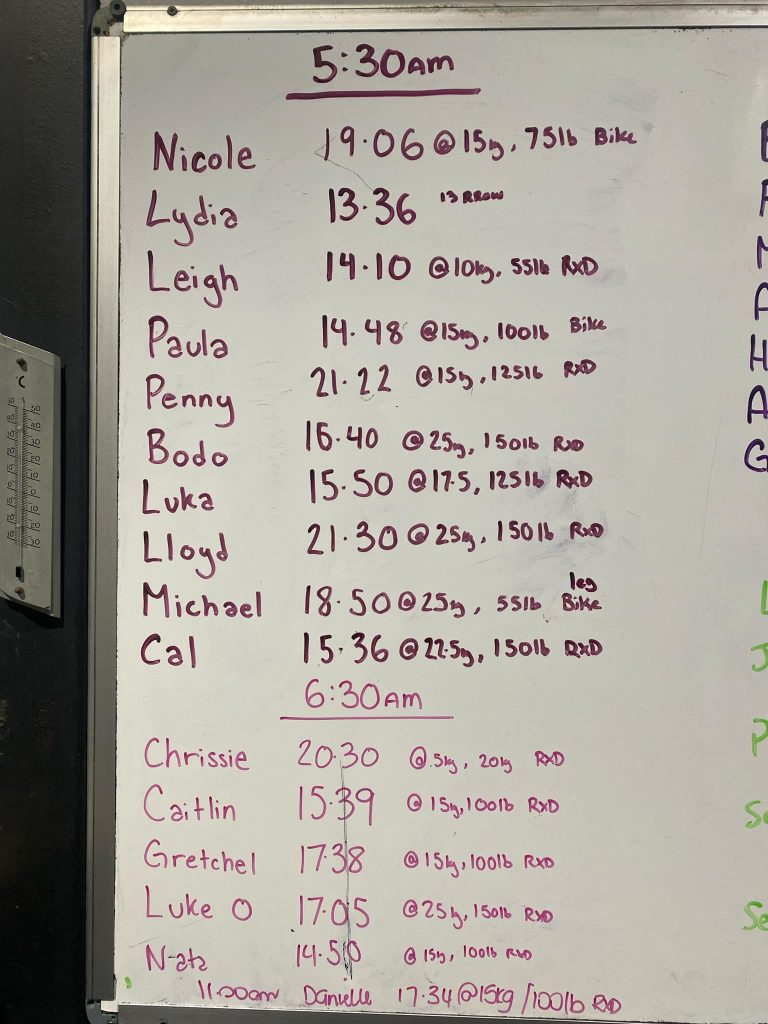 5:30am
Nicole 19.06 @15kg, 75lb Bike
Lydia 13.36 13 RROW
Leigh 14.10 @10kg, 55lb RxD
Paula 14.48 @15kg, 100lb Bike
Penny 21.22 @15kg, 125lb RxD
Bodo 16.40 @25kg, 150lb RxD
Luka 15.50 @17.5, 125lb RxD
Lloyd 21.30 @25kg, 150lb RxD
Michael 18.50 @25kg, 55lb leg Bike
Cal 15.36 @22.5kg, 150lb RxD
6:30am
Chrissie 20.30 @.5kg, 20kg RxD
Caitlin 15.39 @15kg, 100lb RxD
Gretchel 17.38 @15kg, 100lb RxD
Luke O 17.05 @25kg, 150lb RxD
Natz 14.50 @15kg, 100lb RxD
11.00am Danielle 17.34 @15kg/100lb RxD